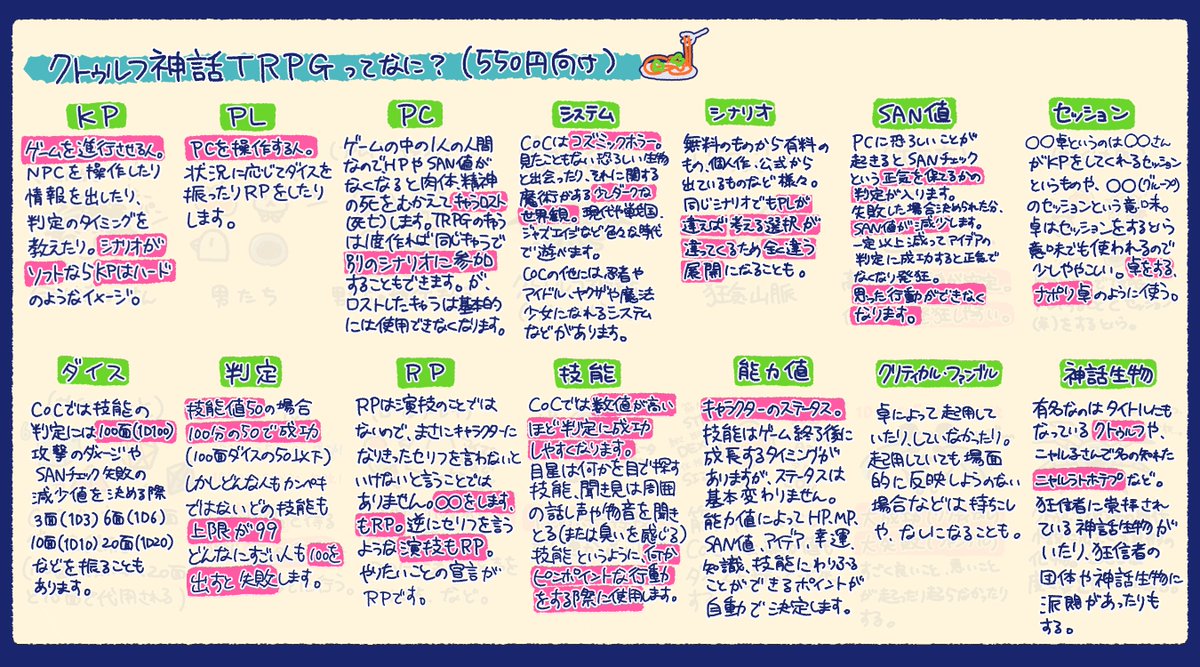 クトゥルフ神話TRPGってなに？(550円向け)
KP
ゲームを進行させる人。
NPCを操作したり
情報を出したり、
判定のタイミングを
教えたり。シナリオが
ソフトならKPはハード
のようなイメージ。
PL
PCを操作する人。
状況に応じてダイスを
振ったりRPをしたり
します。
PC
ゲームの中の1人の人間
なのでHPやSAN値が
なくなると肉体、精神
の死をむかえてキャラロスト
(死亡)します。TRPGのキャラ
は1度作れば同じキャラで
別のシナリオに参加
することもできます。が、
ロストしたキャラは基本的
には使用できなくなります。
システム
CoCはコズミックホラー。
見たこともない恐ろしい生物
と出会ったり、それに関する
魔術がある少しダークな
世界観。現代や戦国、
ジャズエイジなど色々な時代
で遊べます。
CoCの他には、忍者や
アイドル、ヤクザや魔法
少女になれるシステム
などがあります。
シナリオ
無料のものから有料の
もの、個人作、公式から
出ているものなど様々。
同じシナリオでもPLが
違えば考える選択が
違ってくるため全く違う
展開になることも。
SAN値
PCに恐ろしいことが
起きるとSANチェック
という正気を保てるかの
判定が入ります。
失敗した場合決められた分、
SAN値が減少します。
一定以上減ってアイデアの
判定に成功すると正気で
なくなり発狂。
思った行動ができなく
なります。
セッション
〇〇卓というのは〇〇さん
がKPをしてくれるセッション
というものや、〇〇(グループ)
のセッションという意味。
卓はセッションをするという
意味でも使われるので
少しややこしい。卓をする、
ナポリ卓のように使う。
ダイス
CoCでは技能の
判定には100面(1D100)
攻撃のダメージや
SANチェック失敗の
減少値を決める際
3面(1D3) 6面(1D6)
10面(1D10) 20面(1D20)
などを振ることも
あります。
判定
技能値50の場合
100分の50で成功
(100面ダイスの50以下)
しかしどんな人もカンペキ
ではないどの技能も
上限が99
どんなにすごい人も100を
出すと失敗します。
RP
RPは演技のことでは
ないので、まさにキャラクターに
なりきったセリフを言わないと
いけないと言うことでは
ありません。〇〇をします、
もRP。逆にセリフを言う
ような演技もRP。
やりたいことの宣言が
RPです。
技能
CoCでは数値が高い
ほど判定に成功
しやすくなります。
目星は何かを目で探す
技能、聞き耳は周囲
の話し声や物音を聞き
とる(または臭いを感じる)
技能というように、何か
ピンポイントな行動
をする際に使用します。
能力値
キャラクターのステータス。
技能はゲーム終了後に
成長するタイミングが
ありますが、ステータスは
基本変わりません。
能力値によってHP、MP、
SAN値、アイデア、幸運、
知識、技能にわりふる
ことができるポイントが
自動で決定します。
クリティカル・ファンブル
卓によって起用して
いたり、していなかったり。
起用していても場面
的に反映しようのない
場合などは持ちこし
や、なしになることも。
神話生物
有名なのはタイトルにも
なっているクトゥルフや、
ニャルるさんで名の知れた
ニャルラトホテプなど。
狂信者に崇拝され
ている神話生物が
いたり、狂信者の
団体や神話生物に
派閥があったりも
する。